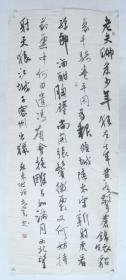 老夫聊发少年狂左牵黄右擎苍锦帽貂
裘千骑卷平冈为报倾城随太守亲射虎看
孙郎酒酣胸胆尚开张鬓微霜又何妨持
节云中何日遣冯唐会挽雕弓如满月西北望
射天狼江城子密州出猎苏东坡词